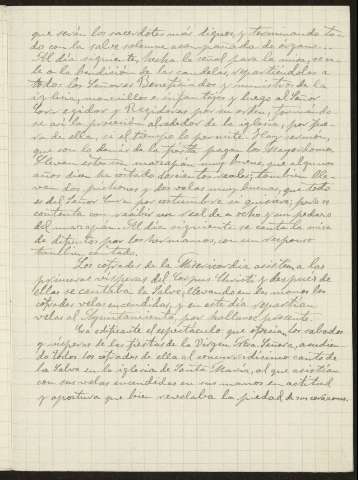 que serán los sacerdotes más dignos, y terminando to-
do con la salve solemne acompañada de órgano...
Al día siguiente, hecha la señal para la misa, se va-
le a la bendición de las candelas, repartiéndolas a
todos los Señores Beneficiados y ministros de la
iglesia, monacillos e infantejos y luego al Señor
Corregidor y Regidores por su orden, formando-
se así la procesión alrededor de la iglesia, por fue-
ra de ella, si el tiempo lo permite. Hay sermón,
que con lo demás de la fiesta pagan los Mayordomos.
Llevan estos un mazapán muy bueno, que algunos
años dicen ha costado doscientos reales; también lle-
van dos pichones y dos velas muy buenas, que todo
es del Señor Cura por costumbre si quisiera; pero se
contenta con recibir un real de a ocho y un pedazo
del mazapán. Al día siguiente se canta la misa
de difuntos por los hermanos, con un responso
también cantado.
Los cofrades de la Misericordia asisten a las
primeras vísperas del Corpus Christi y después de
ellas se cantaba la Salve, llevando en las manos los
cofrades velas encendidas, y en este día repartían
velas al Ayuntamiento por hallarse presente.
Era edificante el espectáculo que ofrecía, los sábados
y vísperas de las fiestas de la Virgen Ntra. Señora, acudien-
do todos los cofrades de ella al concurridísimo canto de
la Salve en la iglesia de Santa María, al que asistían
con sus velas encendidas en sus manos en actitud
y apostura que bien revelaba la piedad de sus corazones.